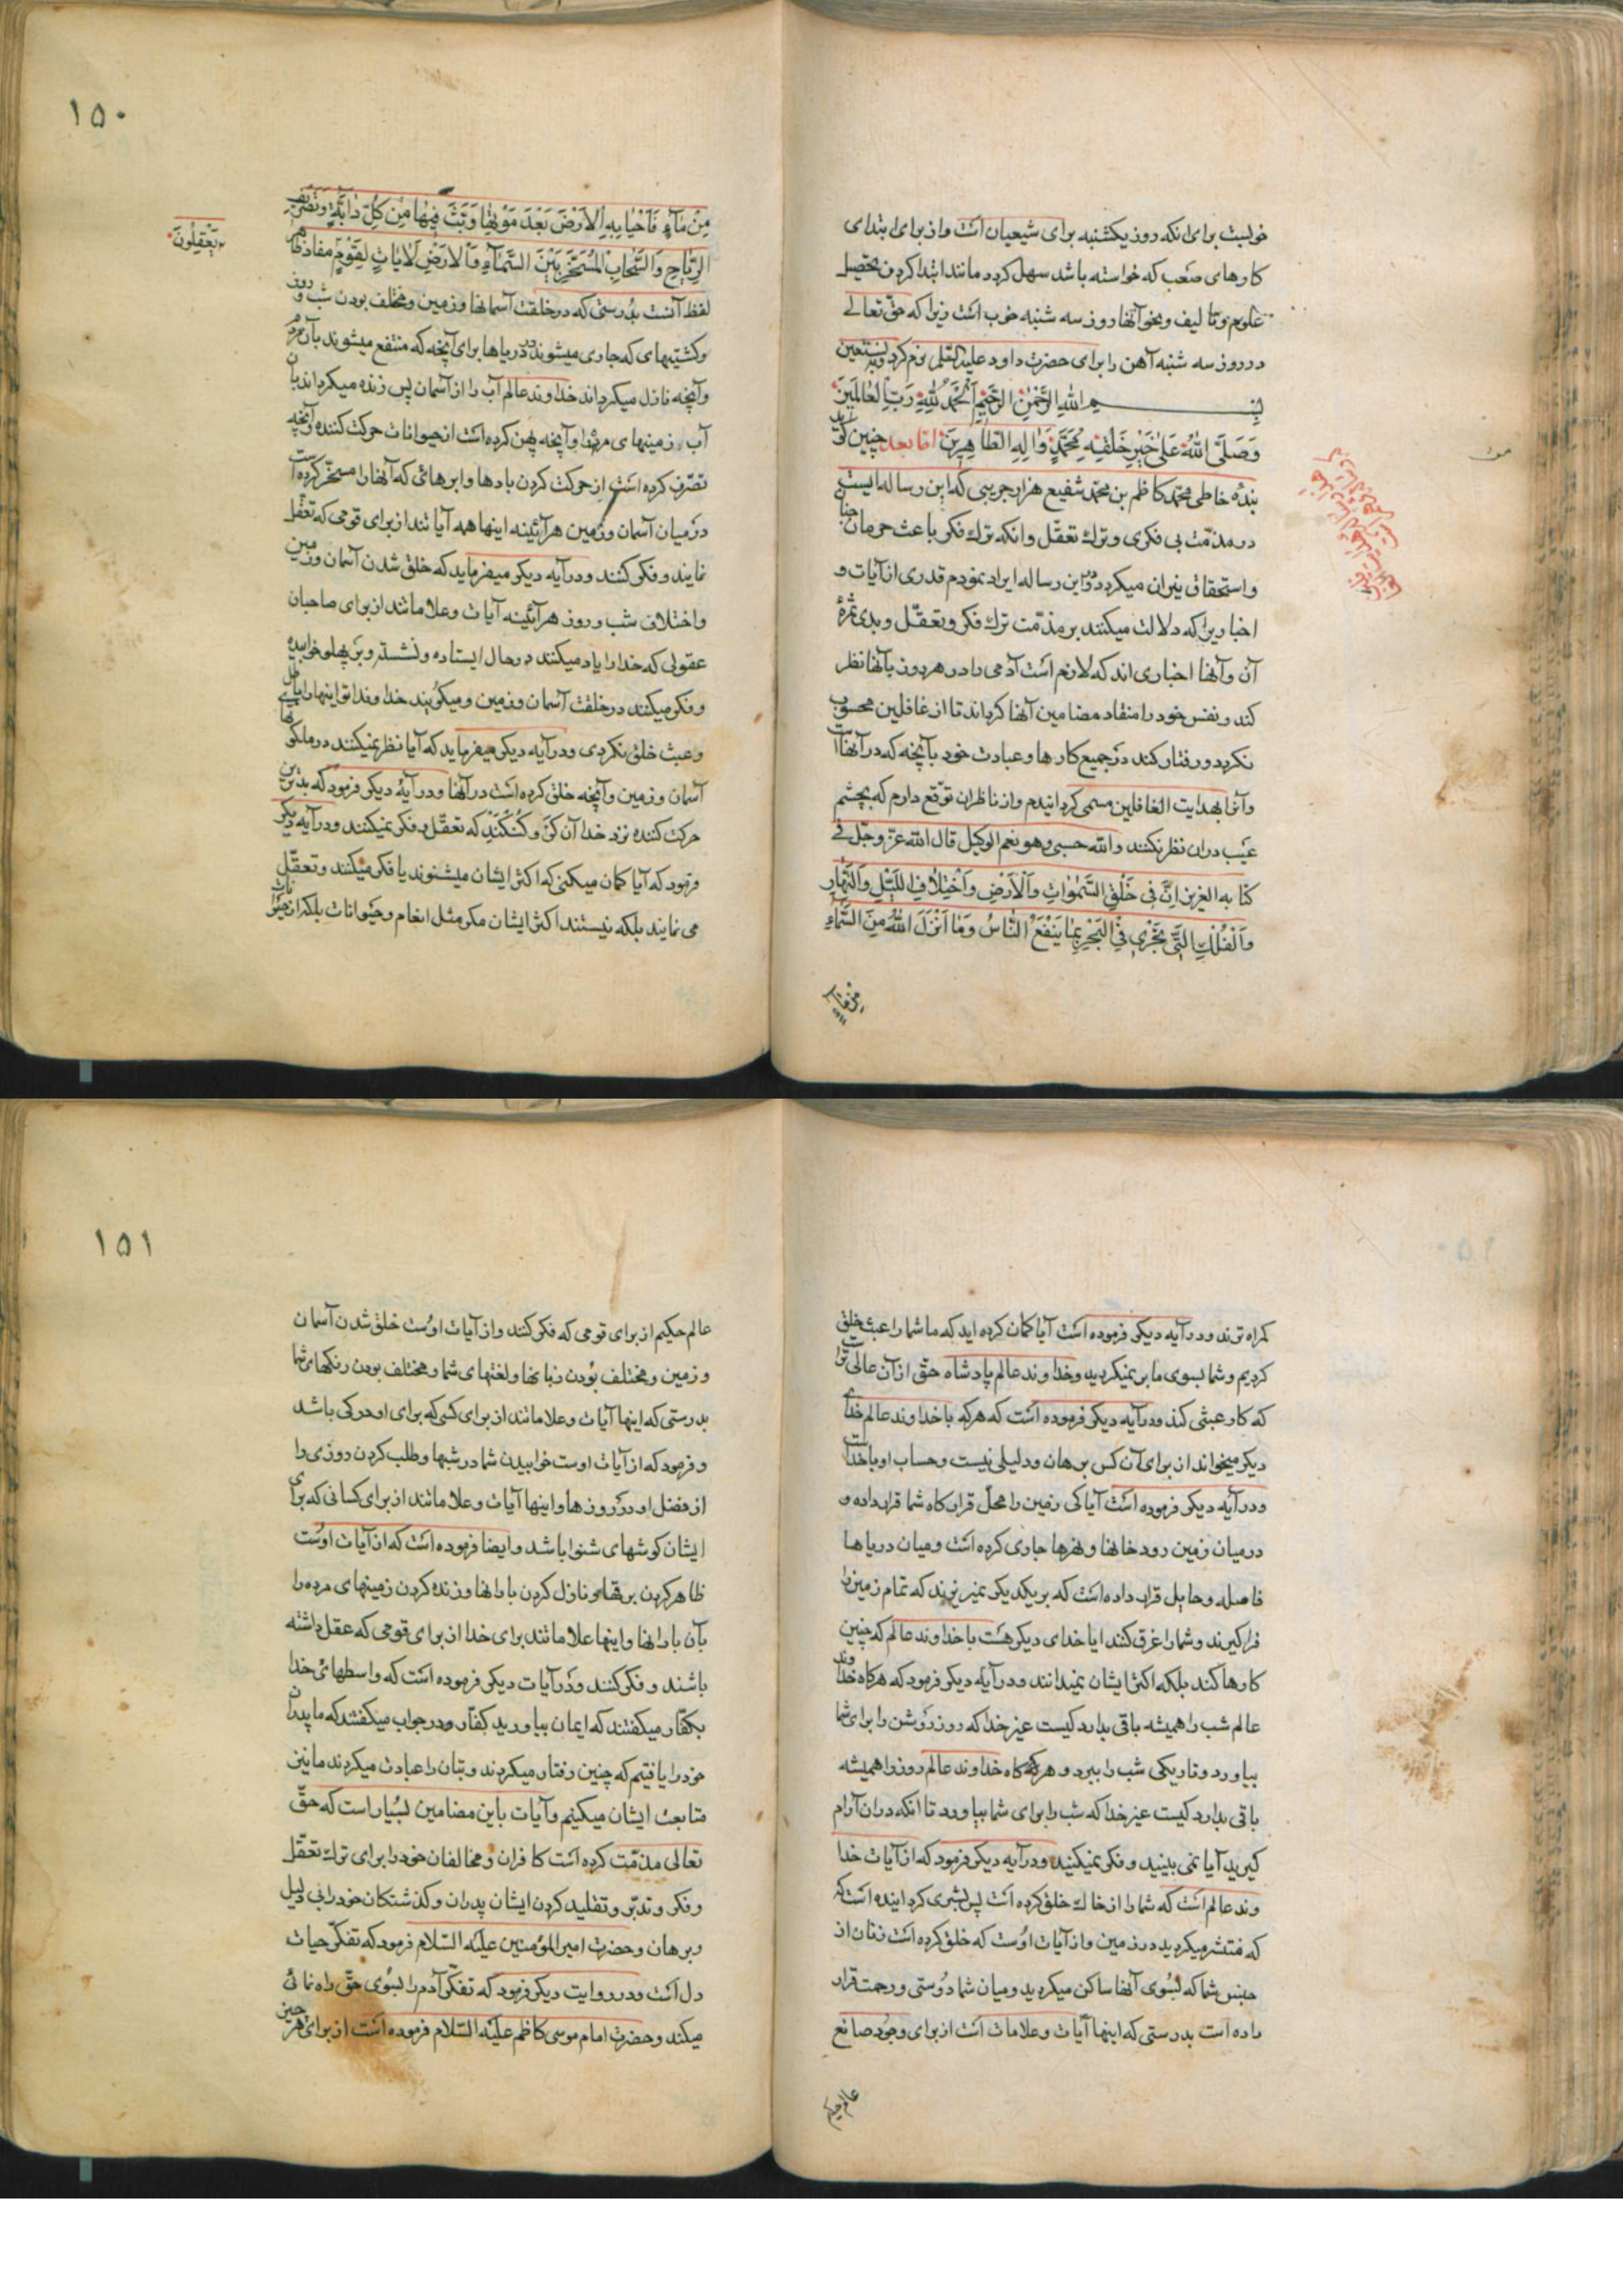 خوبست برای انکه روز یکشنبه برای شیعیان است و از برای ابتدای
کارهای صعب که خواسته باشد سهل کردد مانند ابتدا کردن بتحصیل
علوم و تالیف و نحو آنها روز سه شنبه خوب است زیرا که حق تعالی
در روز سه شنبه آهن را برای حضرت داود علیه السلم نرم کرد و به نستعین
بسم الله الرحمن الرحیم الحمد لله رب العالمین
وصلی الله علی خیر خلقه محمد واله الطاهرین اما بعد چنین کوید
بنده خاطی محمد کاظم بن محمد شفیع هزارجریبی که این رساله ایست
در مذمت بی فکری و ترك تعقل و انکه ترك فکر باعث حرمان جنان
و استحقاق نیران میکردد و در این رساله ایراد نمودم قدری از آیات و
اخباریرا که دلالت میکنند بر مذمت ترك فکر و تعقل و بدی ثمرهٔ
آن و آنها اخباری اند که لازم است آدمی را در هر روز بآنها نظر
کند و نفس خود را منقاد مضامین آنها کرداند تا از غافلین محسوب
نکردد و رفتار کند در جمیع کارها و عبادت خود بآنچه که در آنها است
و آنرا بهدایت الغافلین مسمی کردانیدم و از ناظران توقع دارم که بچشم
عیب دران نظر نکنند والله حسبی وهو نعم الوکیل قال الله عز وجل فی
کتابه العزیز ان فی خلق السموات والارض واختلاف اللیل والنهار
والفلك التی تجری فی البحر بما ینفع الناس وما انزل الله من السماء
من ماء
۱۵۰
من ماء فاحیا به الارض بعد موتها وبث فیها من کل دابة وتصریف
الریاح والسحاب المسخر بین السماء والارض لایات لقوم مفاد ظاهر
یعقلون
لفظ آنست بدرستی که در خلقت آسمانها و زمین و مختلف بودن شب و روز
و کشتیهای که جاری میشوند در دریاها برای آنچه که منتفع میشوند بآن مردم
و آنچه نازل میکرداند خداوند عالم آب را از آسمان پس زنده میکرداند بان
آب زمینهای مرده را و آنچه پهن کرده است از حیوانات حرکت کننده و آنچه
تصرف کرده است از حرکت کردن بادها و ابرهائی که آنها را مسخر کرده است
در میان آسمان و زمین هرآئینه اینها همه آیاتند از برای قومی که تعقل
نمایند و فکر کنند و در آیه دیکر میفرماید که خلق شدن آسمان و زمین
و اختلاف شب و روز هرآئینه آیات و علاماتند از برای صاحبان
عقولی که خدا را یاد میکنند در حال ایستاده و نشسته و بر پهلو خوابیده
و فکر میکنند در خلقت آسمان و زمین و میکویند خداوندا تو اینها را باطل
و عبث خلق نکردی و در آیه دیکر میفرماید که آیا نظر نمیکنند در ملکوتهای
آسمان و زمین و آنچه خلق کرده است در آنها و در آیهٔ دیکر فرمود که بدترین
حرکت کننده نزد خدا آن کر و کنکند که تعقل و فکر نمیکنند و در آیه دیکر
فرمود که آیا کمان میکنی که اکثر ایشان میشنوند یا فکر میکنند و تعقل
می نمایند بلکه نیستند اکثر ایشان مکر مثل انعام و حیوانات بلکه از حیوانات
کمراه ترند و در آیه دیکر فرموده است آیا کمان کرده اید که ما شما را عبث خلق
کردیم و شما بسوی ما بر نمیکردید و خداوند عالم پادشاه حق از آن عالی تر است
که کار عبثی کند و در آیه دیکر فرموده است که هرکه با خداوند عالم خدای
دیکر میخواند از برای آن کس برهان و دلیلی نیست و حساب او با خداست
و در آیه دیکر فرموده است آیا کی زمین را محل قرارکاه شما قرار داده و
در میان زمین رودخانها و نهرها جاری کرده است و میان دریاها
فاصله و حایل قرار داده است که بر یکدیکر نمیریزند که تمام زمین را
فراکیرند و شما را غرق کنند ایا خدای دیکر هست با خداوند عالم که چنین
کارها کند بلکه اکثر ایشان نمیدانند و در آیه دیکر فرمود که هرکاه خداوند
عالم شب را همیشه باقی بدارد کیست غیر خدا که روز روشن را برای شما
بیاورد و تاریکی شب را ببرد و هرکاه خداوند عالم روز را همیشه
باقی بدارد کیست غیر خدا که شب را برای شما بیاورد تا انکه در ان آرام
کیرید آیا نمی بینید و فکر نمیکنید و در آیه دیکر فرمود که از آیات خدا
وند عالم است که شما را از خاك خلق کرده است پس بشری کردانیده است
که منتشر میکردید در زمین و از آیات اوست که خلق کرده است زنان از
جنس شما که بسوی آنها ساکن میکردید و میان شما دوستی و رحمت قرار
داده است بدرستی که اینها آیات و علامات است از برای وجود صانع
عالم حکیم
۱۵۱
عالم حکیم از برای قومی که فکر کنند و از آیات اوست خلق شدن آسمان
و زمین و مختلف بودن زبانها و لغتهای شما و مختلف بودن رنکهای شما
بدرستی که اینها آیات و علاماتند از برای کسی که برای او درکی باشد
و فرمود که از آیات اوست خوابیدن شما در شبها و طلب کردن روزی را
از فضل او در روزها و اینها آیات و علاماتند از برای کسانی که برای
ایشان کوشهای شنوا باشد و ایضا فرموده است که از آیات اوست
ظاهر کردن برقها و نازل کردن بارانها و زنده کردن زمینهای مرده را
بآن بارانها و اینها علاماتند برای خدا از برای قومی که عقل داشته
باشند و فکر کنند و در آیات دیکر فرموده است که واسطهائ خدا
بکفار میکفتند که ایمان بیاورید کفار در جواب میکفتند که ما پدران
خود را یافتیم که چنین رفتار میکردند و بتان را عبادت میکردند ما نیز
متابعت ایشان میکنیم و آیات باین مضامین بسیار است که حق
تعالی مذمت کرده است کافران و مخالفان خود را برای ترك تعقل
و فکر و تدبر و تقلید کردن ایشان پدران و کذشتکان خود را بی دلیل
و برهان و حضرت امیر المؤمنین علیه السلام فرمود که تفکر حیات
دل است و در روایت دیکر فرمود که تفکر آدم را بسوی حق راه نمائی
میکند و حضرت امام موسی کاظم علیه السلام فرموده است از برای هر چیز